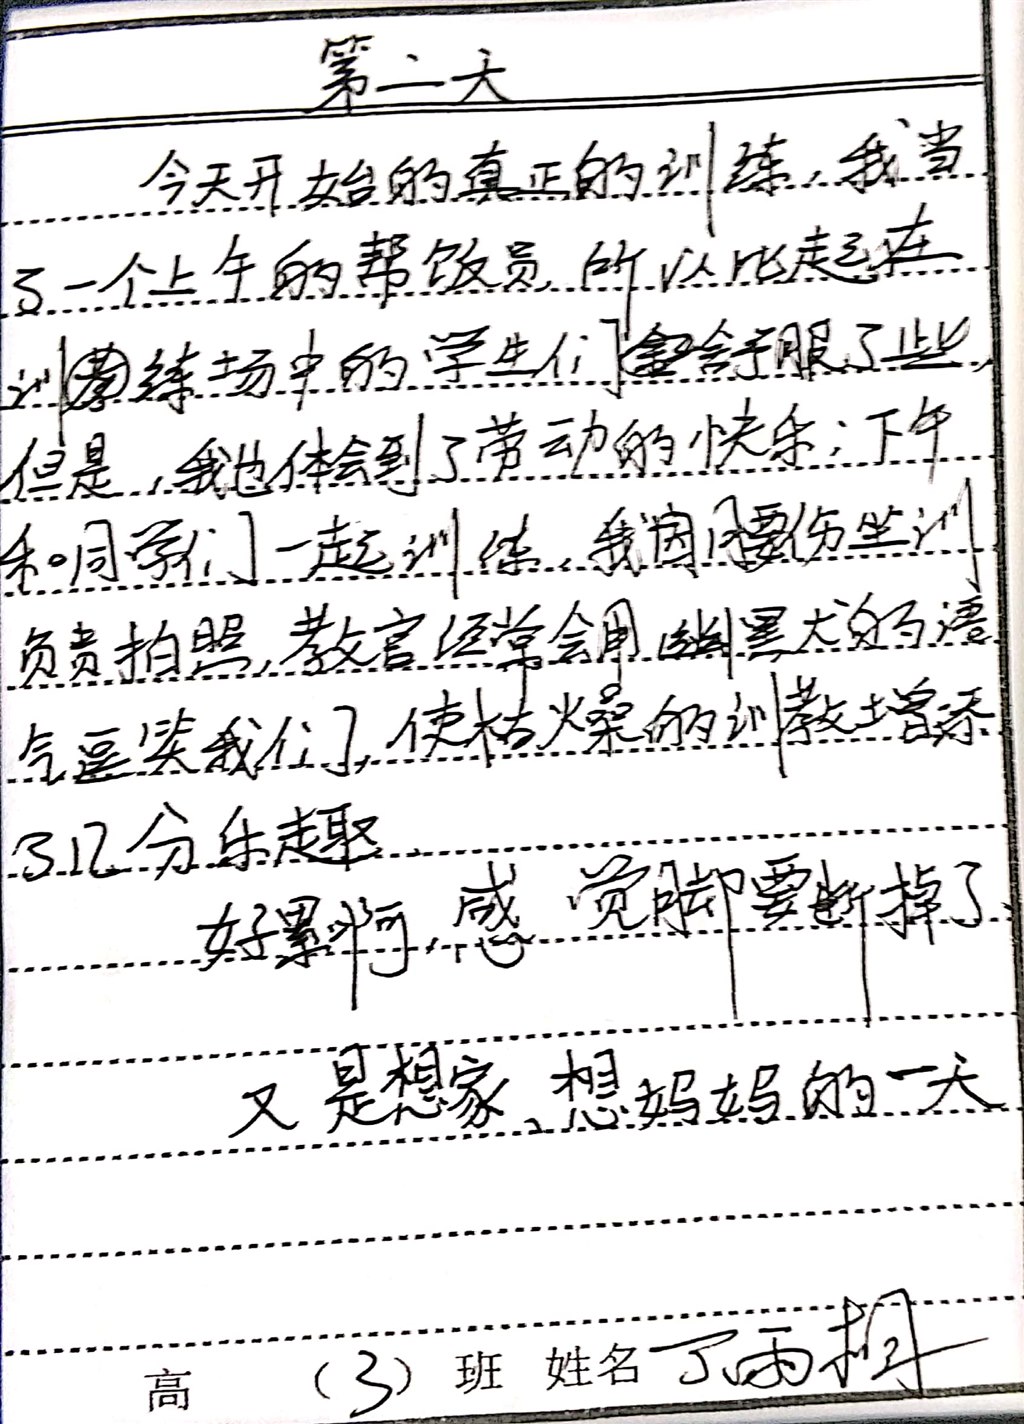 第二天
今天开始的真正的训练,我当
了一个上午的帮饭员,所以比起在
训练场中的学生们舒服了些,
但是,我也体会到了劳动的快乐;下午
和同学们一起训练,我因腰伤坐训
负责拍照,教官经常会用幽默的语
气逗笑我们,使枯燥的训教增添
了几分乐趣.
好累啊,感觉脚要断掉了.
又是想家、想妈妈的一天
高 (3)班 姓名 丁雨桐